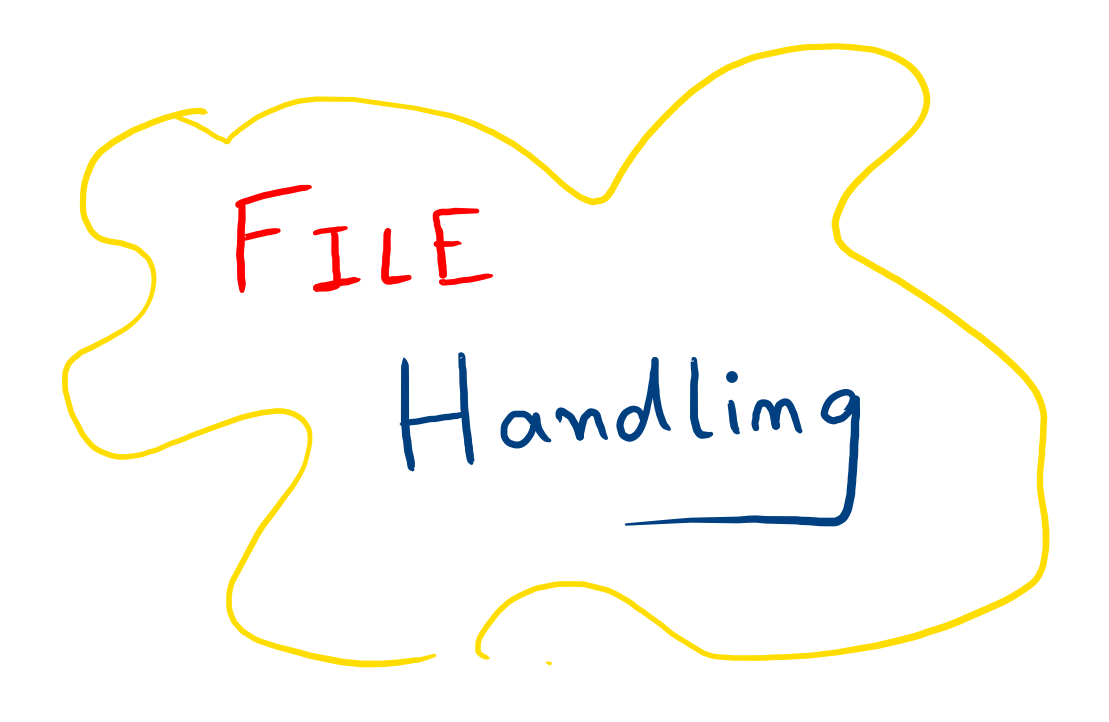 FILE
Handling